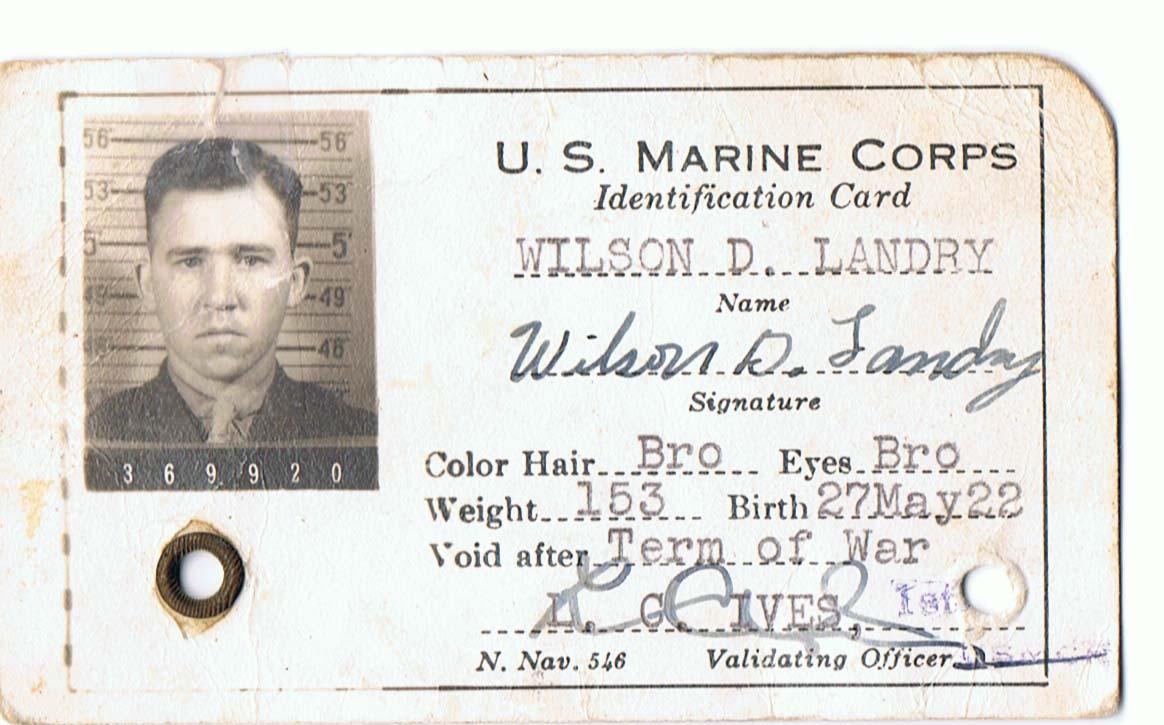 56 56
53 53
5' 5'
49 49
46
3 6 9 9 2 0
U. S. MARINE CORPS
Identification Card
WILSON D. LANDRY
Name
Wilson D. Landry
Signature
Color Hair Bro Eyes Bro
Weight 153 Birth 27May22
Void after Term of War
G. IVES, 1st
N. Nav. 546 Validating Officer